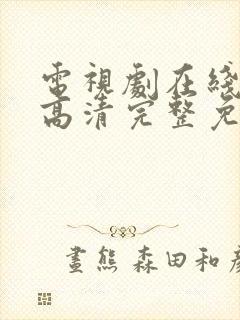 電視劇在綫
高清完整免
畫熊 森田和彥